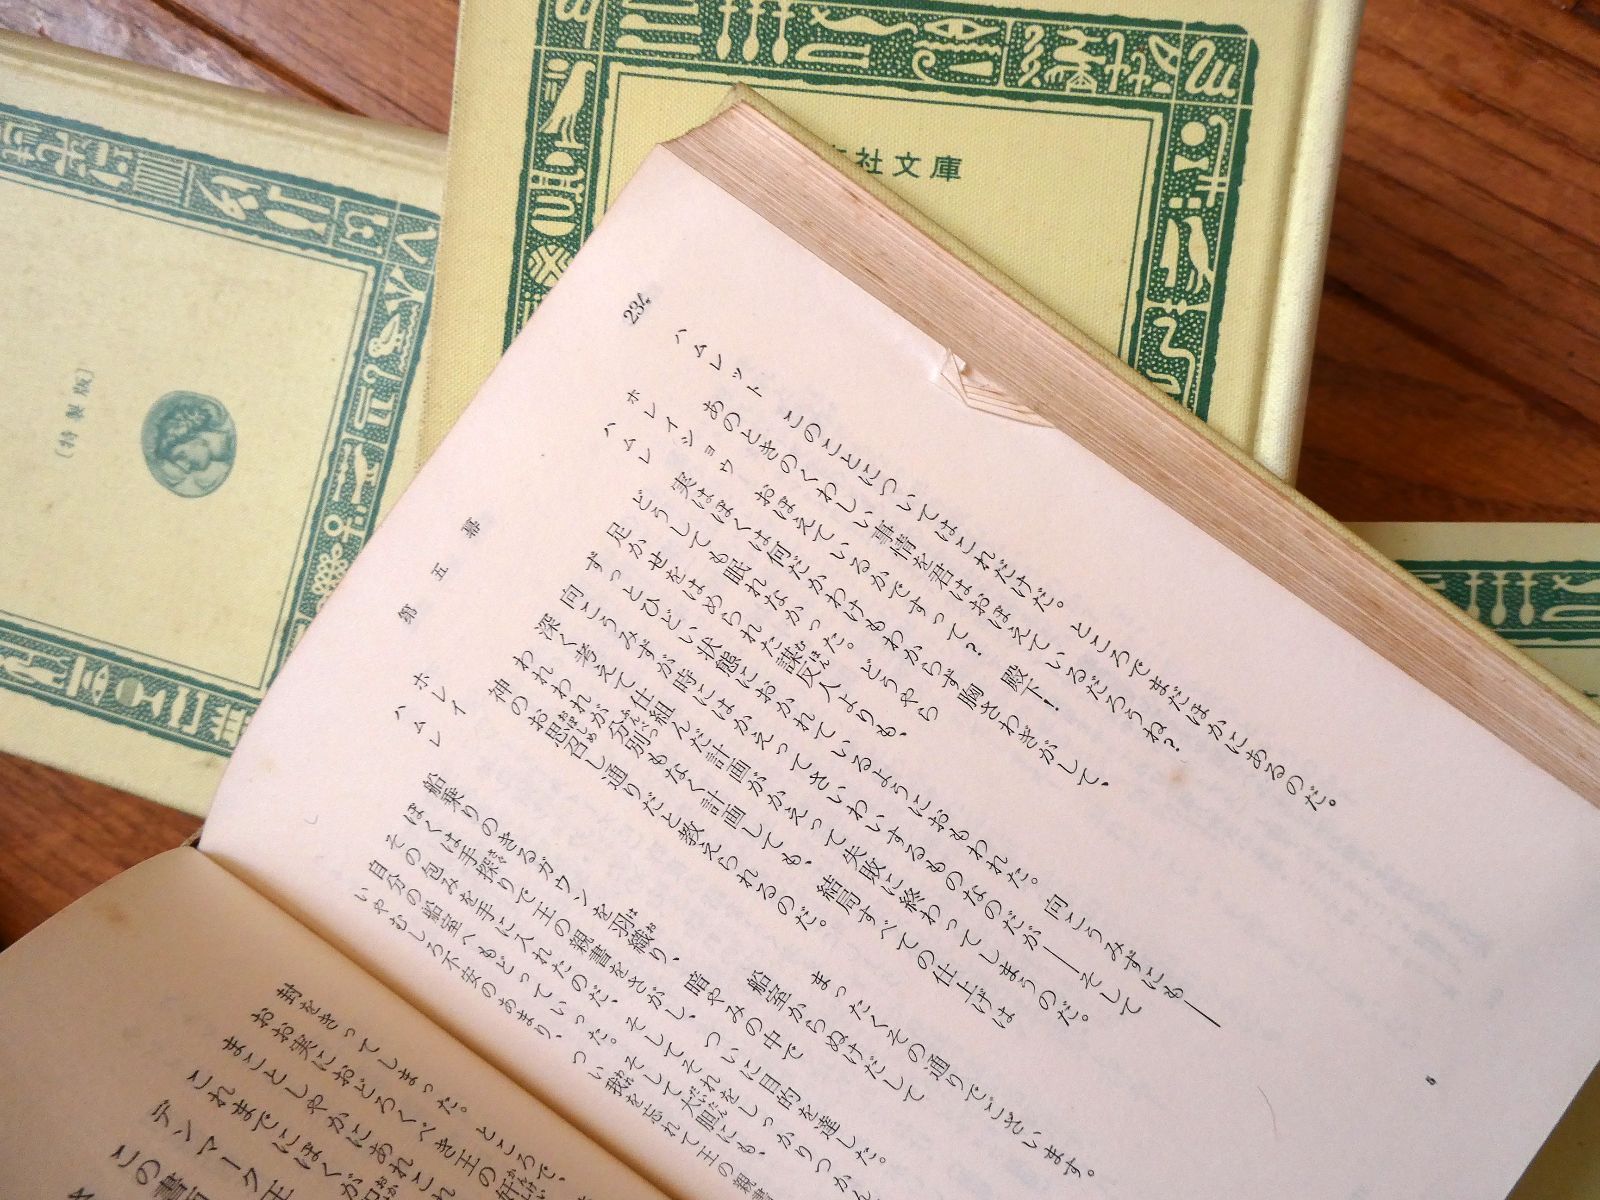 社文庫
〔特製版〕
234
第五幕
ハムレット　このことについてはこれだけだ。ところでまだほかにあるのだ。
あのときのくわしい事情を君はおぼえているだろうね？
ホレイショウ　おぼえているかですって？　殿下！
ハムレ　実はぼくは何だかわけもわからず胸さわぎがして、
どうしても眠れなかった。どうやら
足かせをはめられた謀反人よりも、
ずっとひどい状態におかれているようにおもわれた。向こうみずにも――
向こうみずが時にはかえってさいわいするものなのだが――そして
深く考えて仕組んだ計画がかえって失敗に終わってしまうのだ。
われわれが分別もなく計画しても、結局すべての仕上げは
神のお思召し通りだと教えられるのだ。
ホレイ　まったくその通りでございます。
ハムレ　船室からぬけだして
船乗りのきるガウンを羽織り、暗やみの中で
ぼくは手探りで王の親書をさがし、ついに目的を達した。
その包みを手に入れたのだ、そしてそれをしっかりつかん
自分の船室へもどっていった。そして大胆にも、
いやむしろ不安のあまり、つい我を忘れて王の親書
封をきってしまった。ところで、
おお実におどろくべき王の奸
まことしやかにあれこれ
これまでにぼくが
デンマーク王
この書